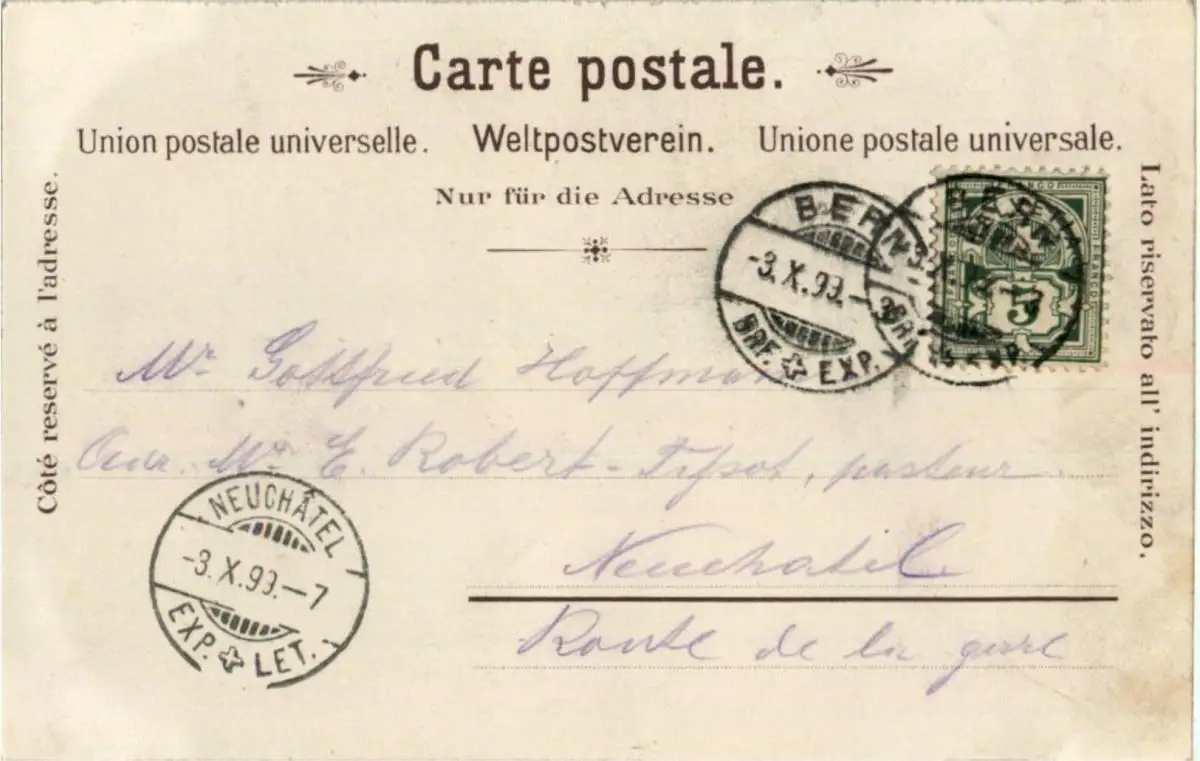 Carte postale.
Union postale universelle. Weltpostverein. Unione postale universale.
Nur für die Adresse
Côté reservé à l'adresse.
Lato riservato all' indirizzo.
BERN
-3.X.99.-
BRF. EXP.
BERN
3.X.
BRF. EXP.
FRANCO
5
Mr Gottfried Hoffman
Mr. E. Robert-Tissot, pasteur
Neuchatel
Route de la gare
NEUCHÂTEL
-3.X.99.-7
EXP. LET.